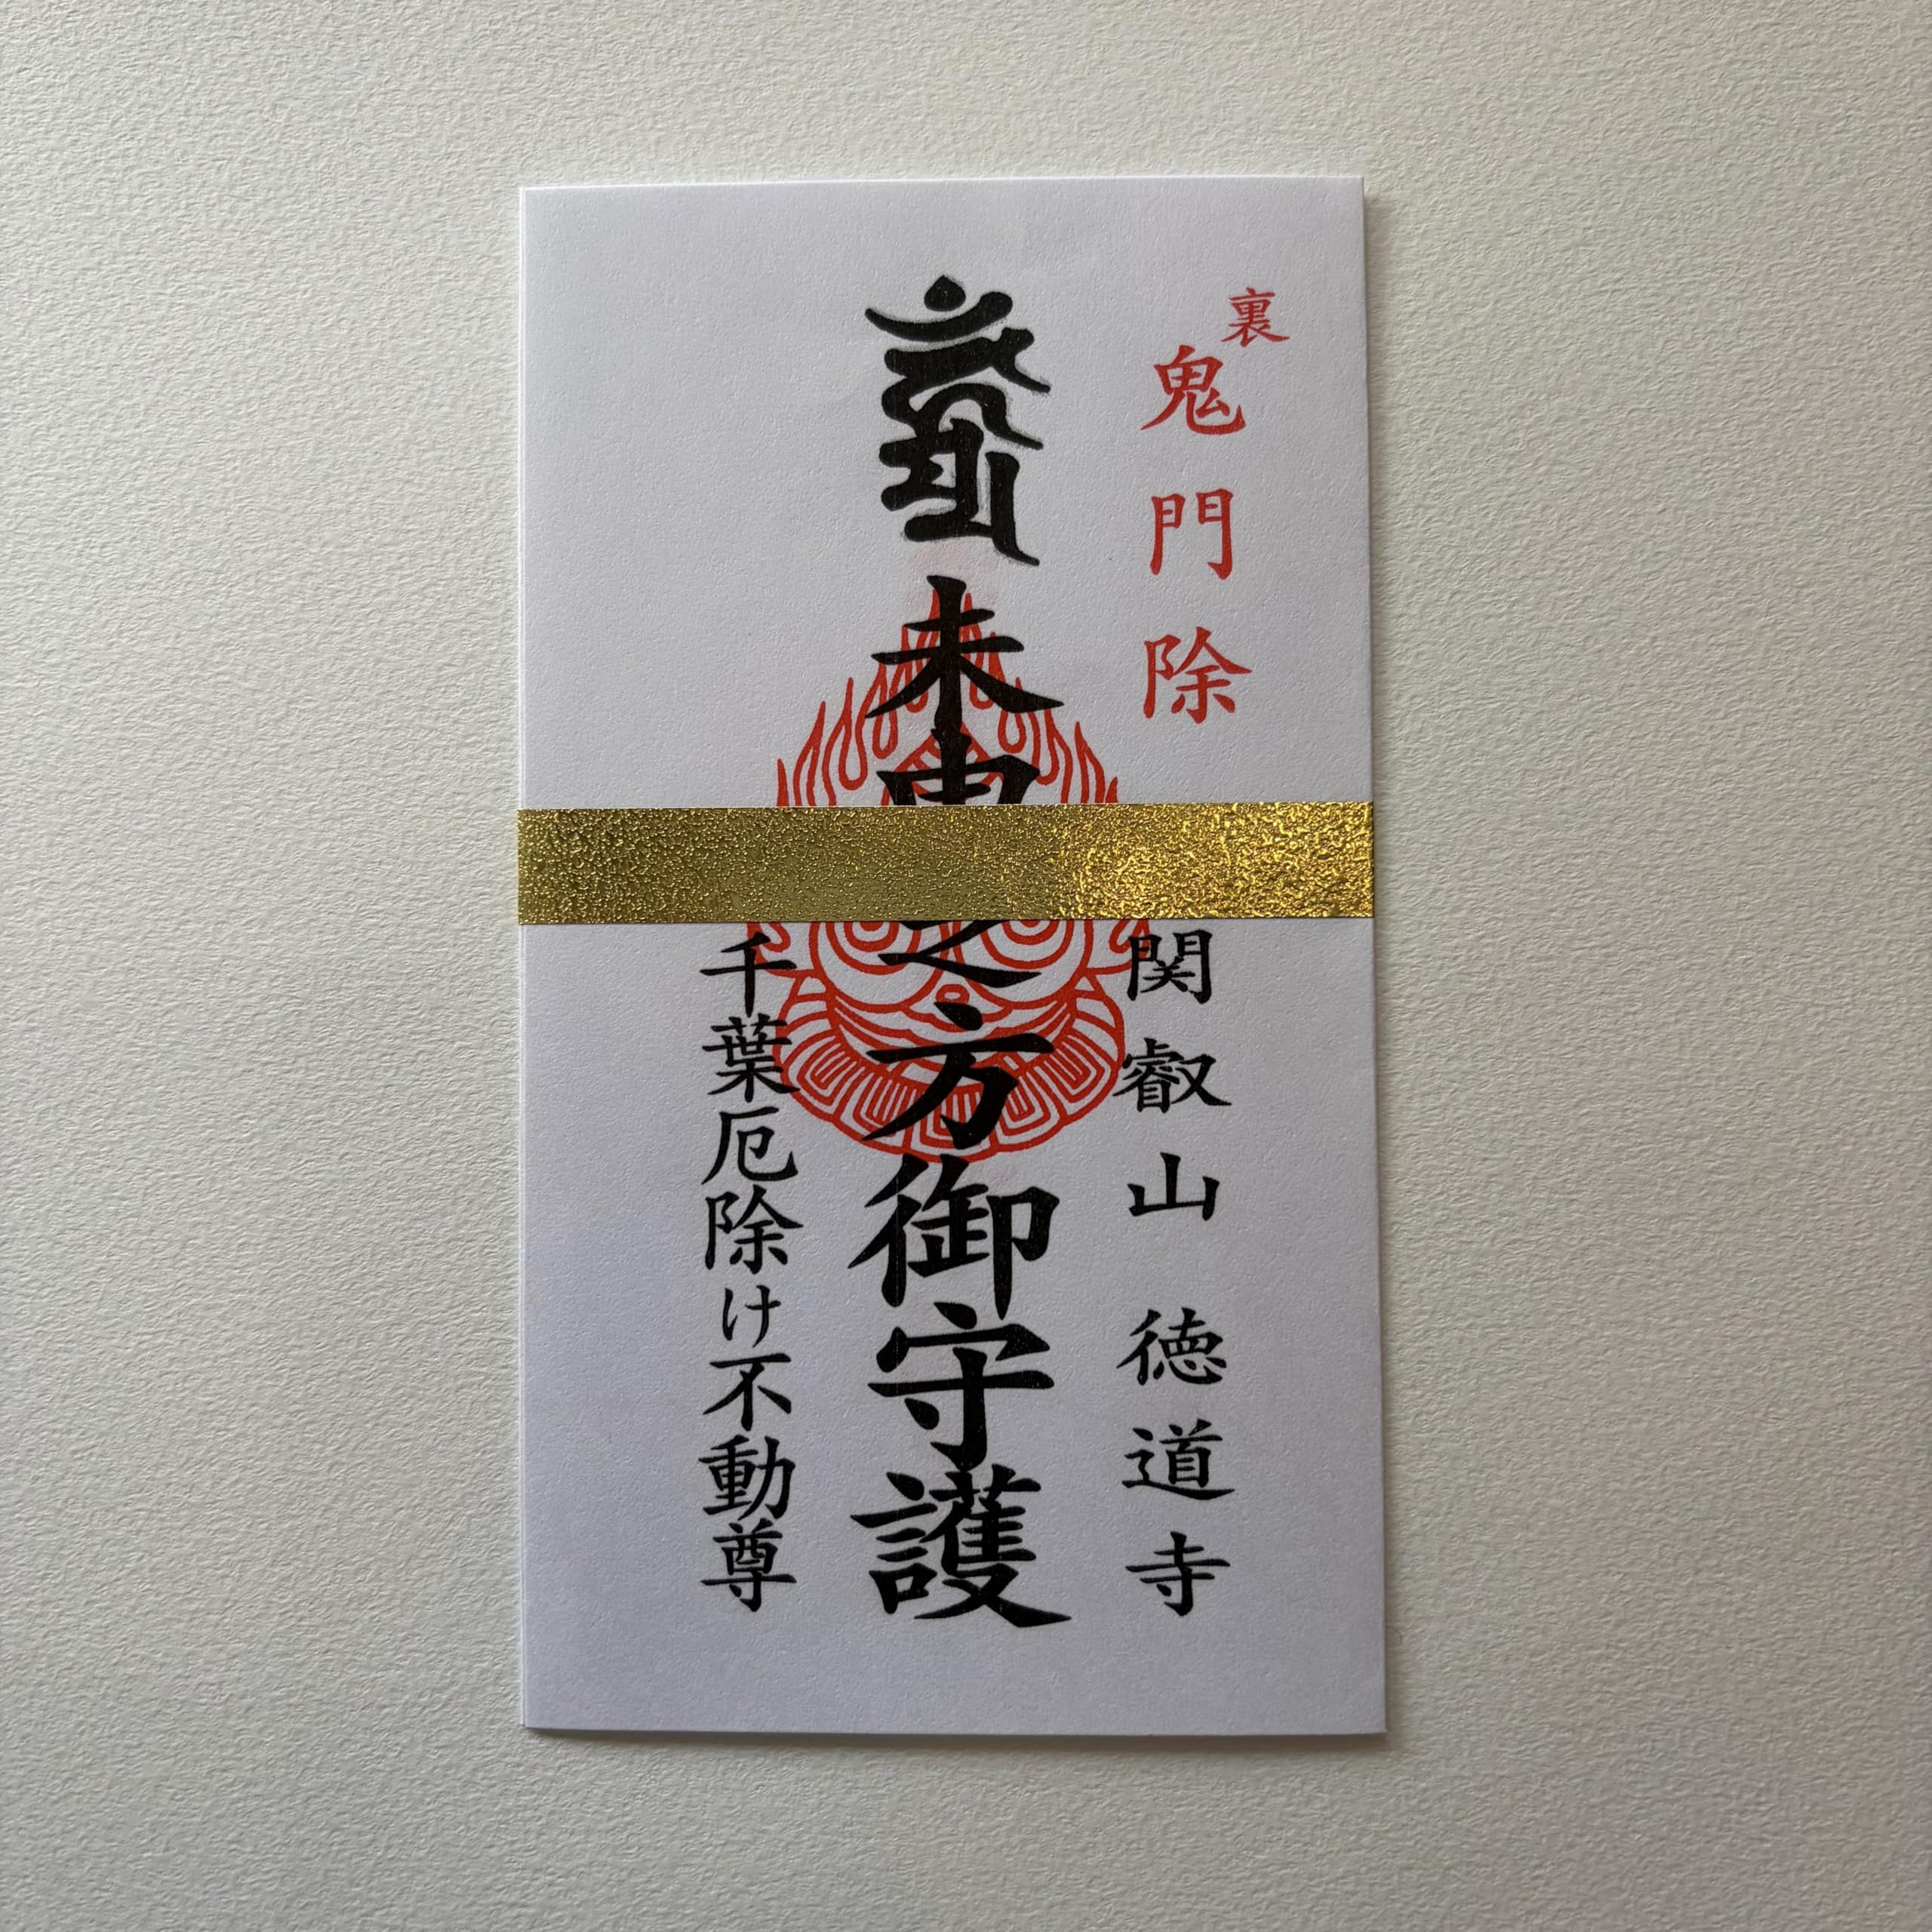 裏鬼門除
関叡山 徳道寺
未申之方御守護
千葉厄除け不動尊